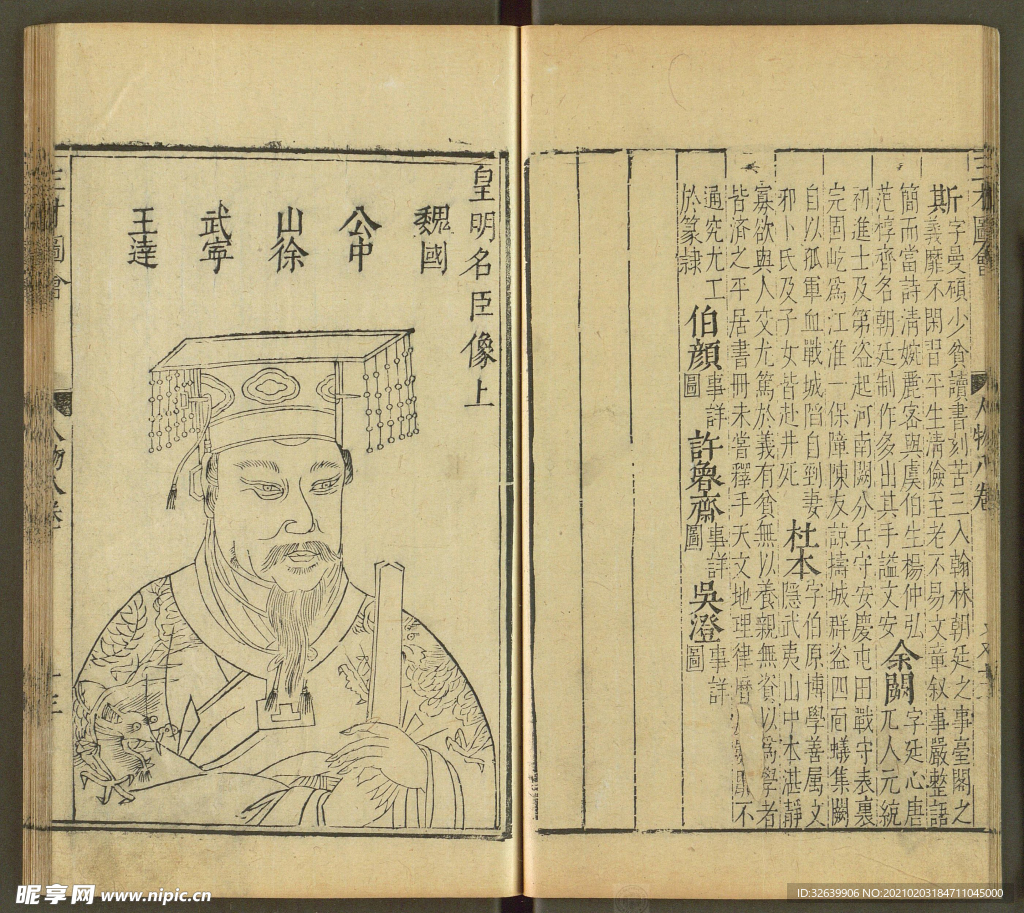 三才圖會
人物八卷
斯
字曼碩少貧讀書刻苦三入翰林朝廷之事臺閣之
義靡不閑習平生清儉至老不易文章叙事嚴整語
簡而當詩清婉麗客與虞伯生楊仲弘
范梈齊名朝廷制作多出其手謚文安
余闕
字廷心唐
兀人元統
初進士及第盜起河南闕分兵守安慶屯田戰守表裏
完固屹為江淮一保障陳友諒擣城群盜四面蟻集闕
自以孤軍血戰城陷自剄妻
邪卜氏及子女皆赴井死
杜本
字伯原博學善属文
隱武夷山中本湛靜
寡欲與人交尤篤於義有貧無以養親無貲以為學者
皆濟之平居書冊未嘗釋手天文地理律曆不
通究尤工
於篆隸
伯顏
事詳
圖
許魯齋
事詳
圖
吳澄
事詳
圖
皇明名臣像上
魏國
公中
山徐
武寧
王達
三才圖會
人物八卷
十三
昵享网 www.nipic.cn
ID:32639906 NO:20210203184711045000